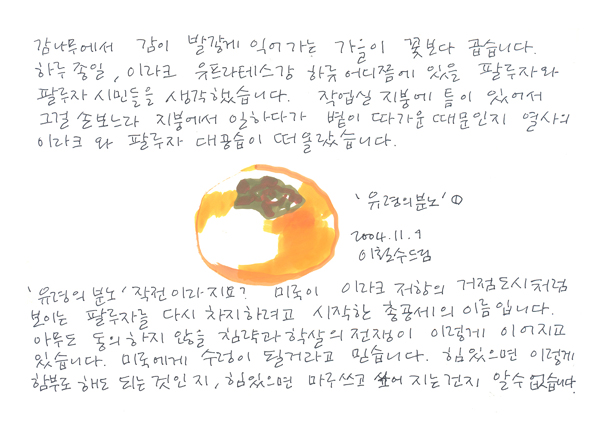 감나무에서 감이 발갛게 익어가는 가을이 꽃보다 곱습니다.
하루종일, 이라크 유프라테스강 하류 어디쯤에 있을 팔루자와
팔루자 시민들을 생각했습니다. 작업실 지붕에 틈이 있어서
그걸 손보느라 지붕에서 일하다가 볕이 따가운 때문인지 열사의
이라크와 팔루자 대공습이 떠올랐습니다.
'유령의분노' ①
2004.11.9
이철수드림
'유령의 분노' 작전이라지요? 미국이 이라크 저항의 거점도시처럼
보이는 팔루자를 다시 차지하려고 시작한 총공세의 이름입니다.
아무도 동의하지 않을 침략과 학살의 전쟁이 이렇게 이어지고
있습니다. 미국에게 수렁이 될거라고 믿습니다. 힘있으면 이렇게
함부로 해도 되는 것인지, 힘있으면 마구쓰고 싶어 지는건지 알수없습니다